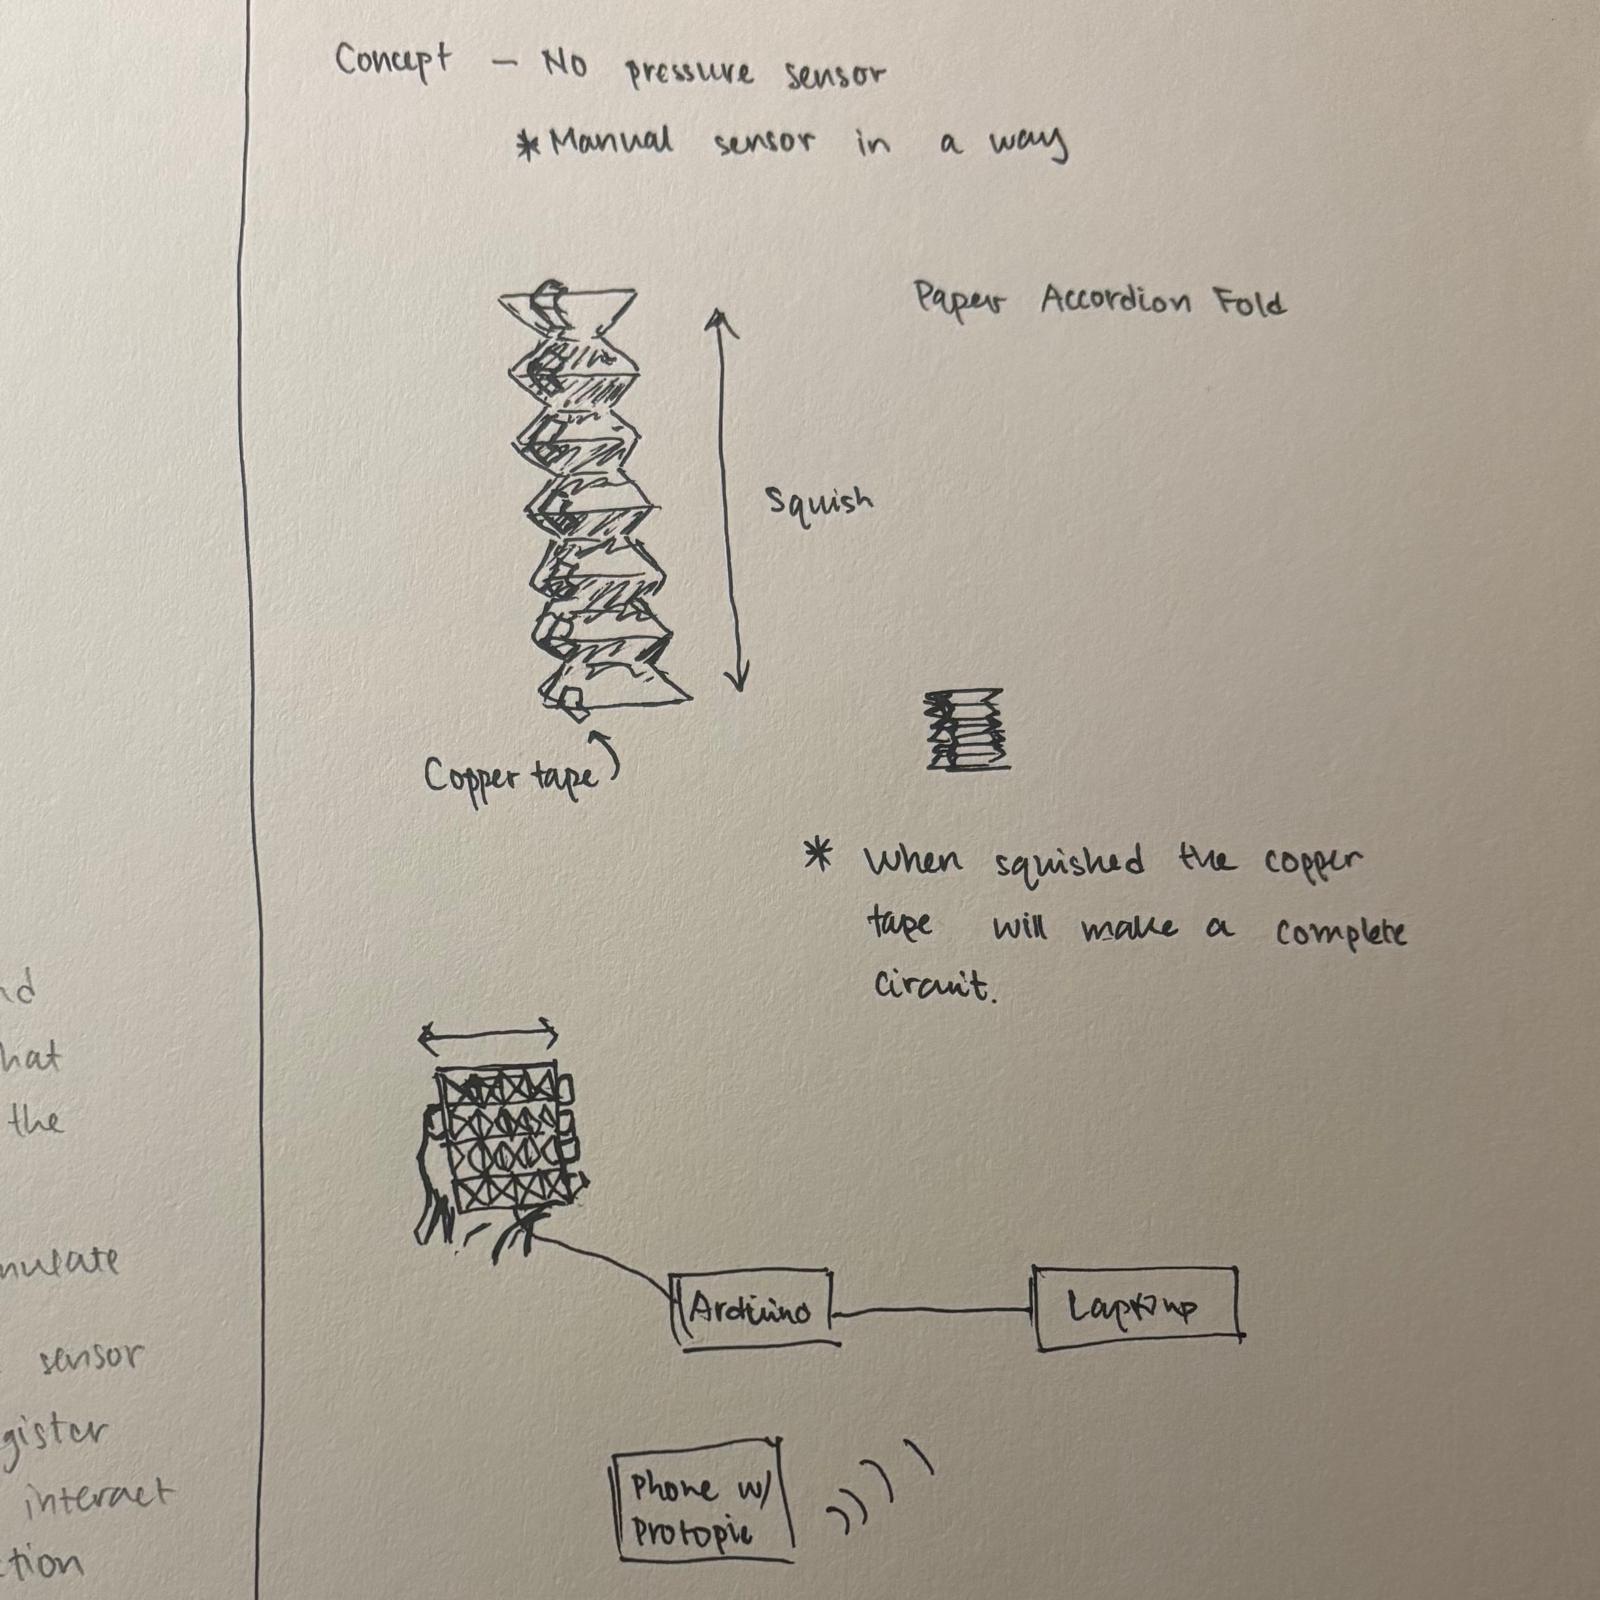 Concept - No pressure sensor
*Manual sensor in a way
Paper Accordion Fold
Squish
Copper tape
* When squished the copper
tape will make a complete
circuit.
nd
hat
the
mulate
sensor
gister
interact
tion
Arduino
Phone w/
Protopie